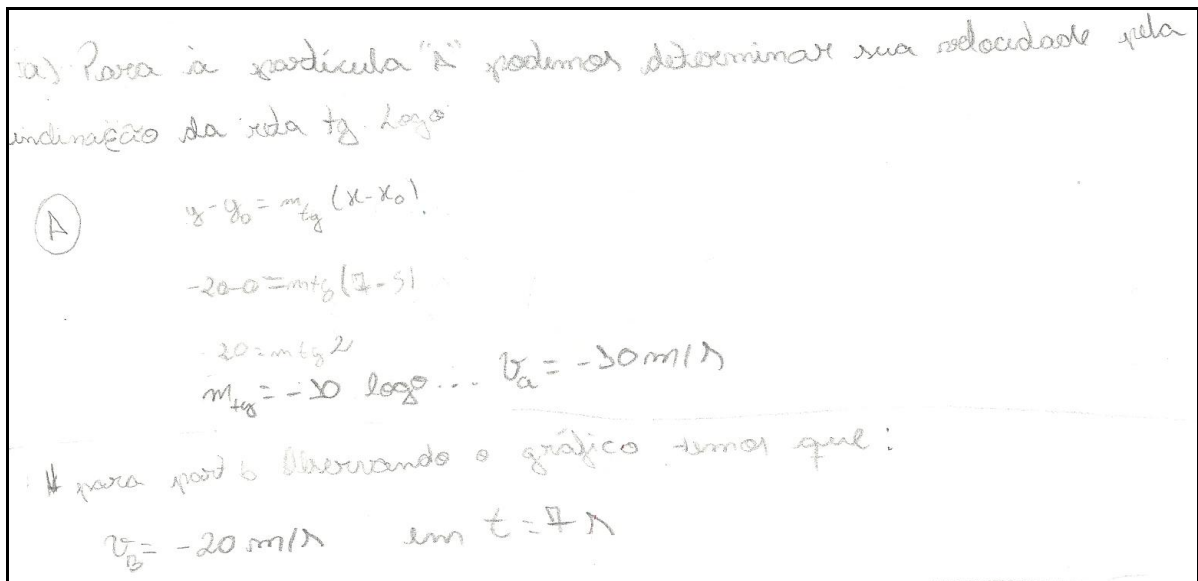 a) Para à partícula "A" podemos determinar sua velocidade pela
inclinação da reta tg. Logo
A
y-y₀ = m_tg (x-x₀).
-20-0 = mtg (7-5)
-20 = mtg 2
m_tg = -10 logo... v_a = -10 m/s
para part b Observando o gráfico temos que:
v_B = -20 m/s em t = 7 s